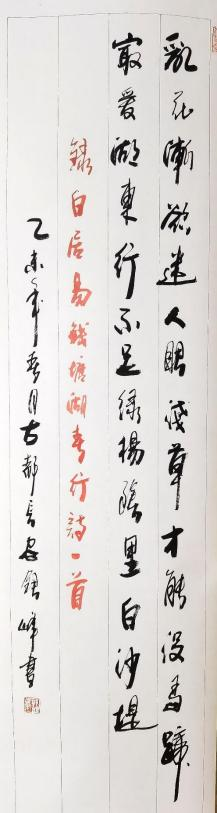 亂花漸欲迷人眼淺草才能沒馬蹄
最愛湖東行不足綠楊陰里白沙堤
錄白居易錢塘湖春行詩一首
乙未年春月古都長安鎮峰書